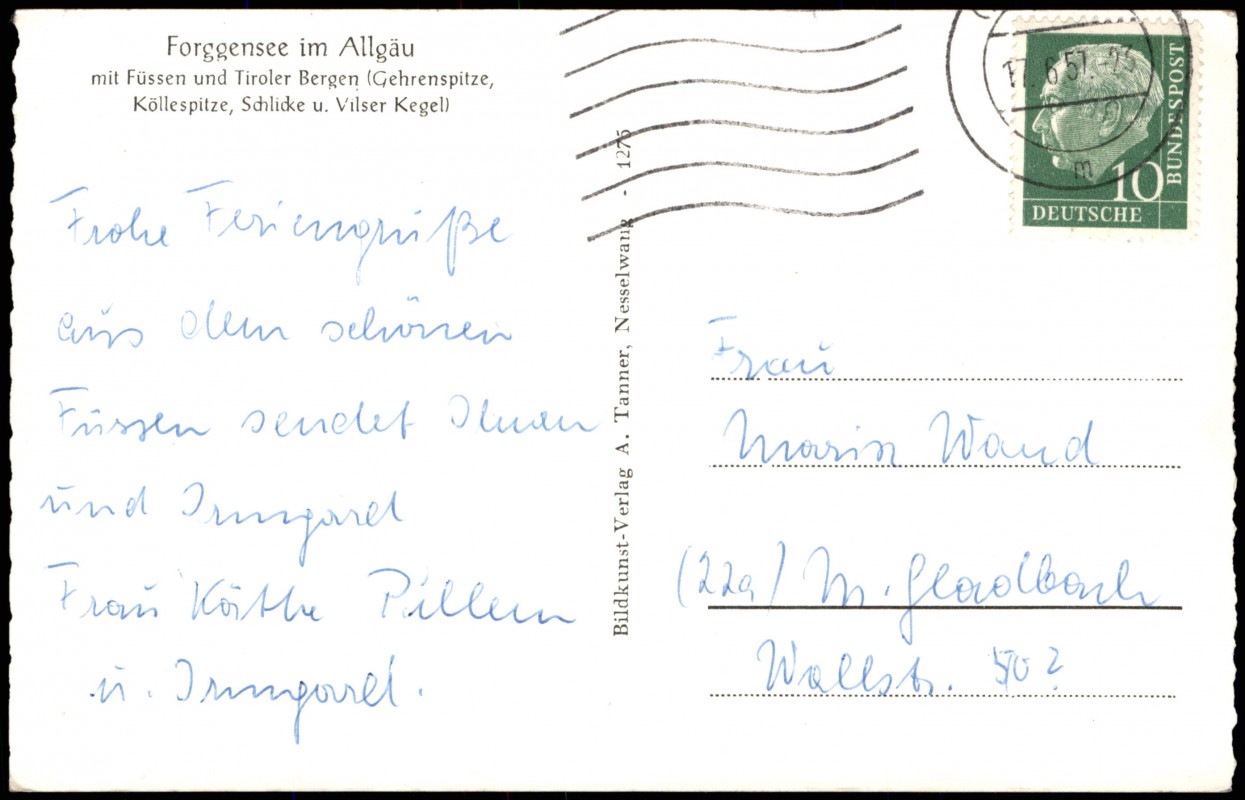 Forggensee im Allgäu
mit Füssen und Tiroler Bergen (Gehrenspitze,
Köllespitze, Schlicke u. Vilser Kegel)
Frohe Feriengrüße
aus dem schönen
Füssen sendet Ihnen
und Irmgard
Frau Käthe Pillen
u. Irmgard.
Bildkunst-Verlag A. Tanner, Nesselwang - 1275
17.6.57.-23
m
10
BUNDESPOST
DEUTSCHE
Frau
Maria Wand
(22a) M. Gladbach
Wallstr. 50?